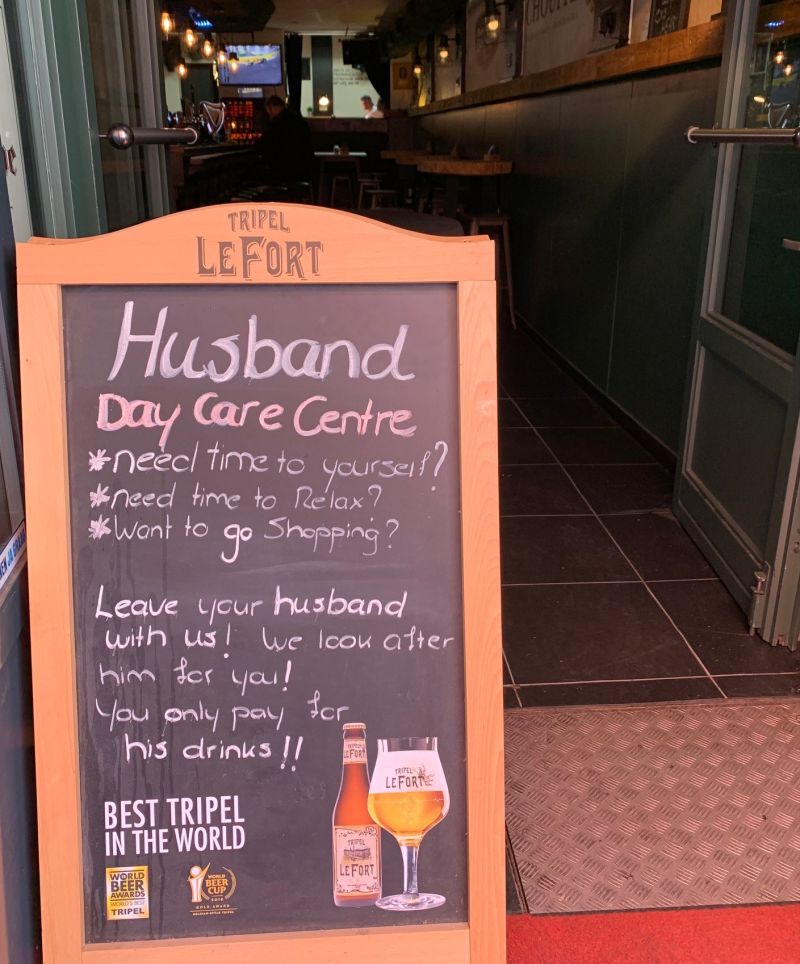 CHOUFFE
TRIPEL
LEFORT
Husband
Day Care Centre
* need time to yourself?
* need time to Relax?
* Want to go Shopping?
Leave your husband
with us! We look after
him for you!
You only pay for
his drinks!!
BEST TRIPEL
IN THE WORLD
WORLD
BEER
AWARDS
WORLD'S BEST
TRIPEL
WORLD
BEER
CUP
GOLD AWARD
BELGIAN-STYLE TRIPEL
TRIPEL
LEFORT
TRIPEL
LEFORT
TRIPEL
LEFORT